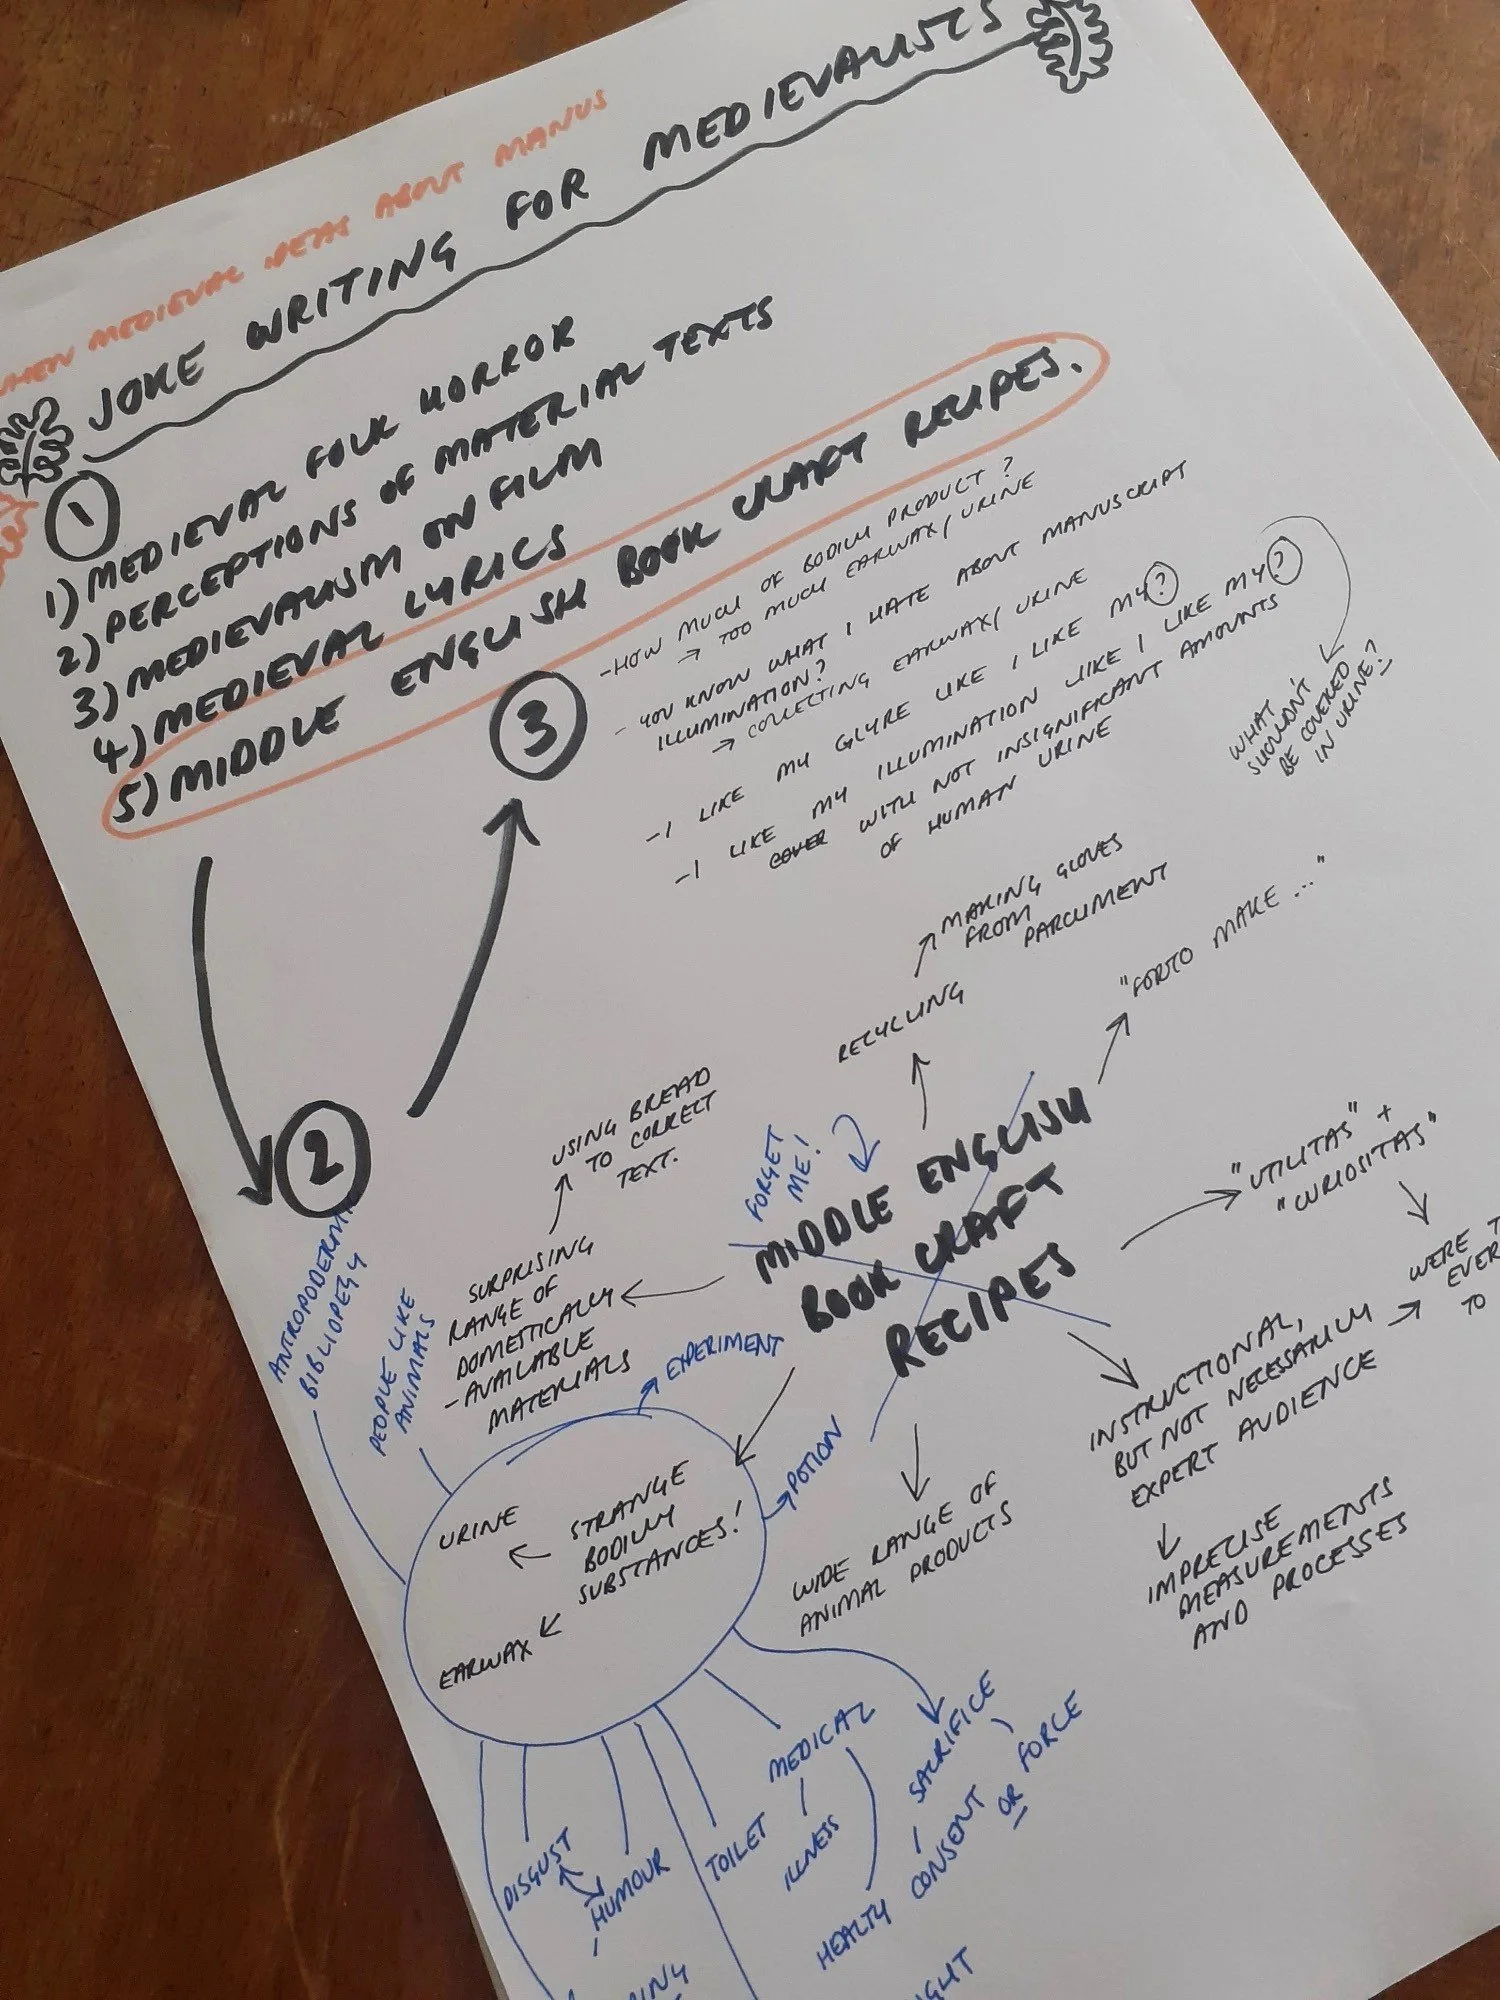 WHEN MEDIEVAL IDEAS ABOUT MANUS
JOKE WRITING FOR MEDIEVALISTS
1
1) MEDIEVAL FOLK HORROR
2) PERCEPTIONS OF MATERIAL TEXTS
3) MEDIEVALISM ON FILM
4) MEDIEVAL LYRICS
5) MIDDLE ENGLISH BOOK CRAFT RECIPES.
3
- HOW MUCH OF BODILY PRODUCT?
→ TOO MUCH EARWAX/URINE
- YOU KNOW WHAT I HATE ABOUT MANUSCRIPT
ILLUMINATION?
→ COLLECTING EARWAX/URINE
- I LIKE MY GLYRE LIKE I LIKE MY ?
- I LIKE MY ILLUMINATION LIKE I LIKE MY ?
COVER WITH NOT INSIGNIFICANT AMOUNTS
OF HUMAN URINE
WHAT
SHOULDN'T
BE COVERED
IN URINE?
2
MIDDLE ENGLISH
BOOK CRAFT
RECIPES
FORGET
ME!
RECYCLING
MAKING GLOVES
FROM
PARCHMENT
"FORTO MAKE ..."
"UTILITAS" +
"CURIOSITAS"
WERE
EVER
TO
INSTRUCTIONAL,
BUT NOT NECESSARILY
EXPERT AUDIENCE
IMPRECISE
MEASUREMENTS
AND PROCESSES
WIDE RANGE OF
ANIMAL PRODUCTS
SURPRISING
RANGE OF
DOMETICALLY
-AVAILABLE
MATERIALS
USING BREAD
TO CORRECT
TEXT.
STRANGE
BODILY
SUBSTANCES!
URINE
EARWAX
ANTROPODERMI
BIBLIOPEGY
PEOPLE LIKE
ANIMALS
EXPERIMENT
POTION
DISGUST
HUMOUR
TOILET
MEDICAL
ILLNESS
HEALTHY
SACRIFICE
CONSENT OR FORCE